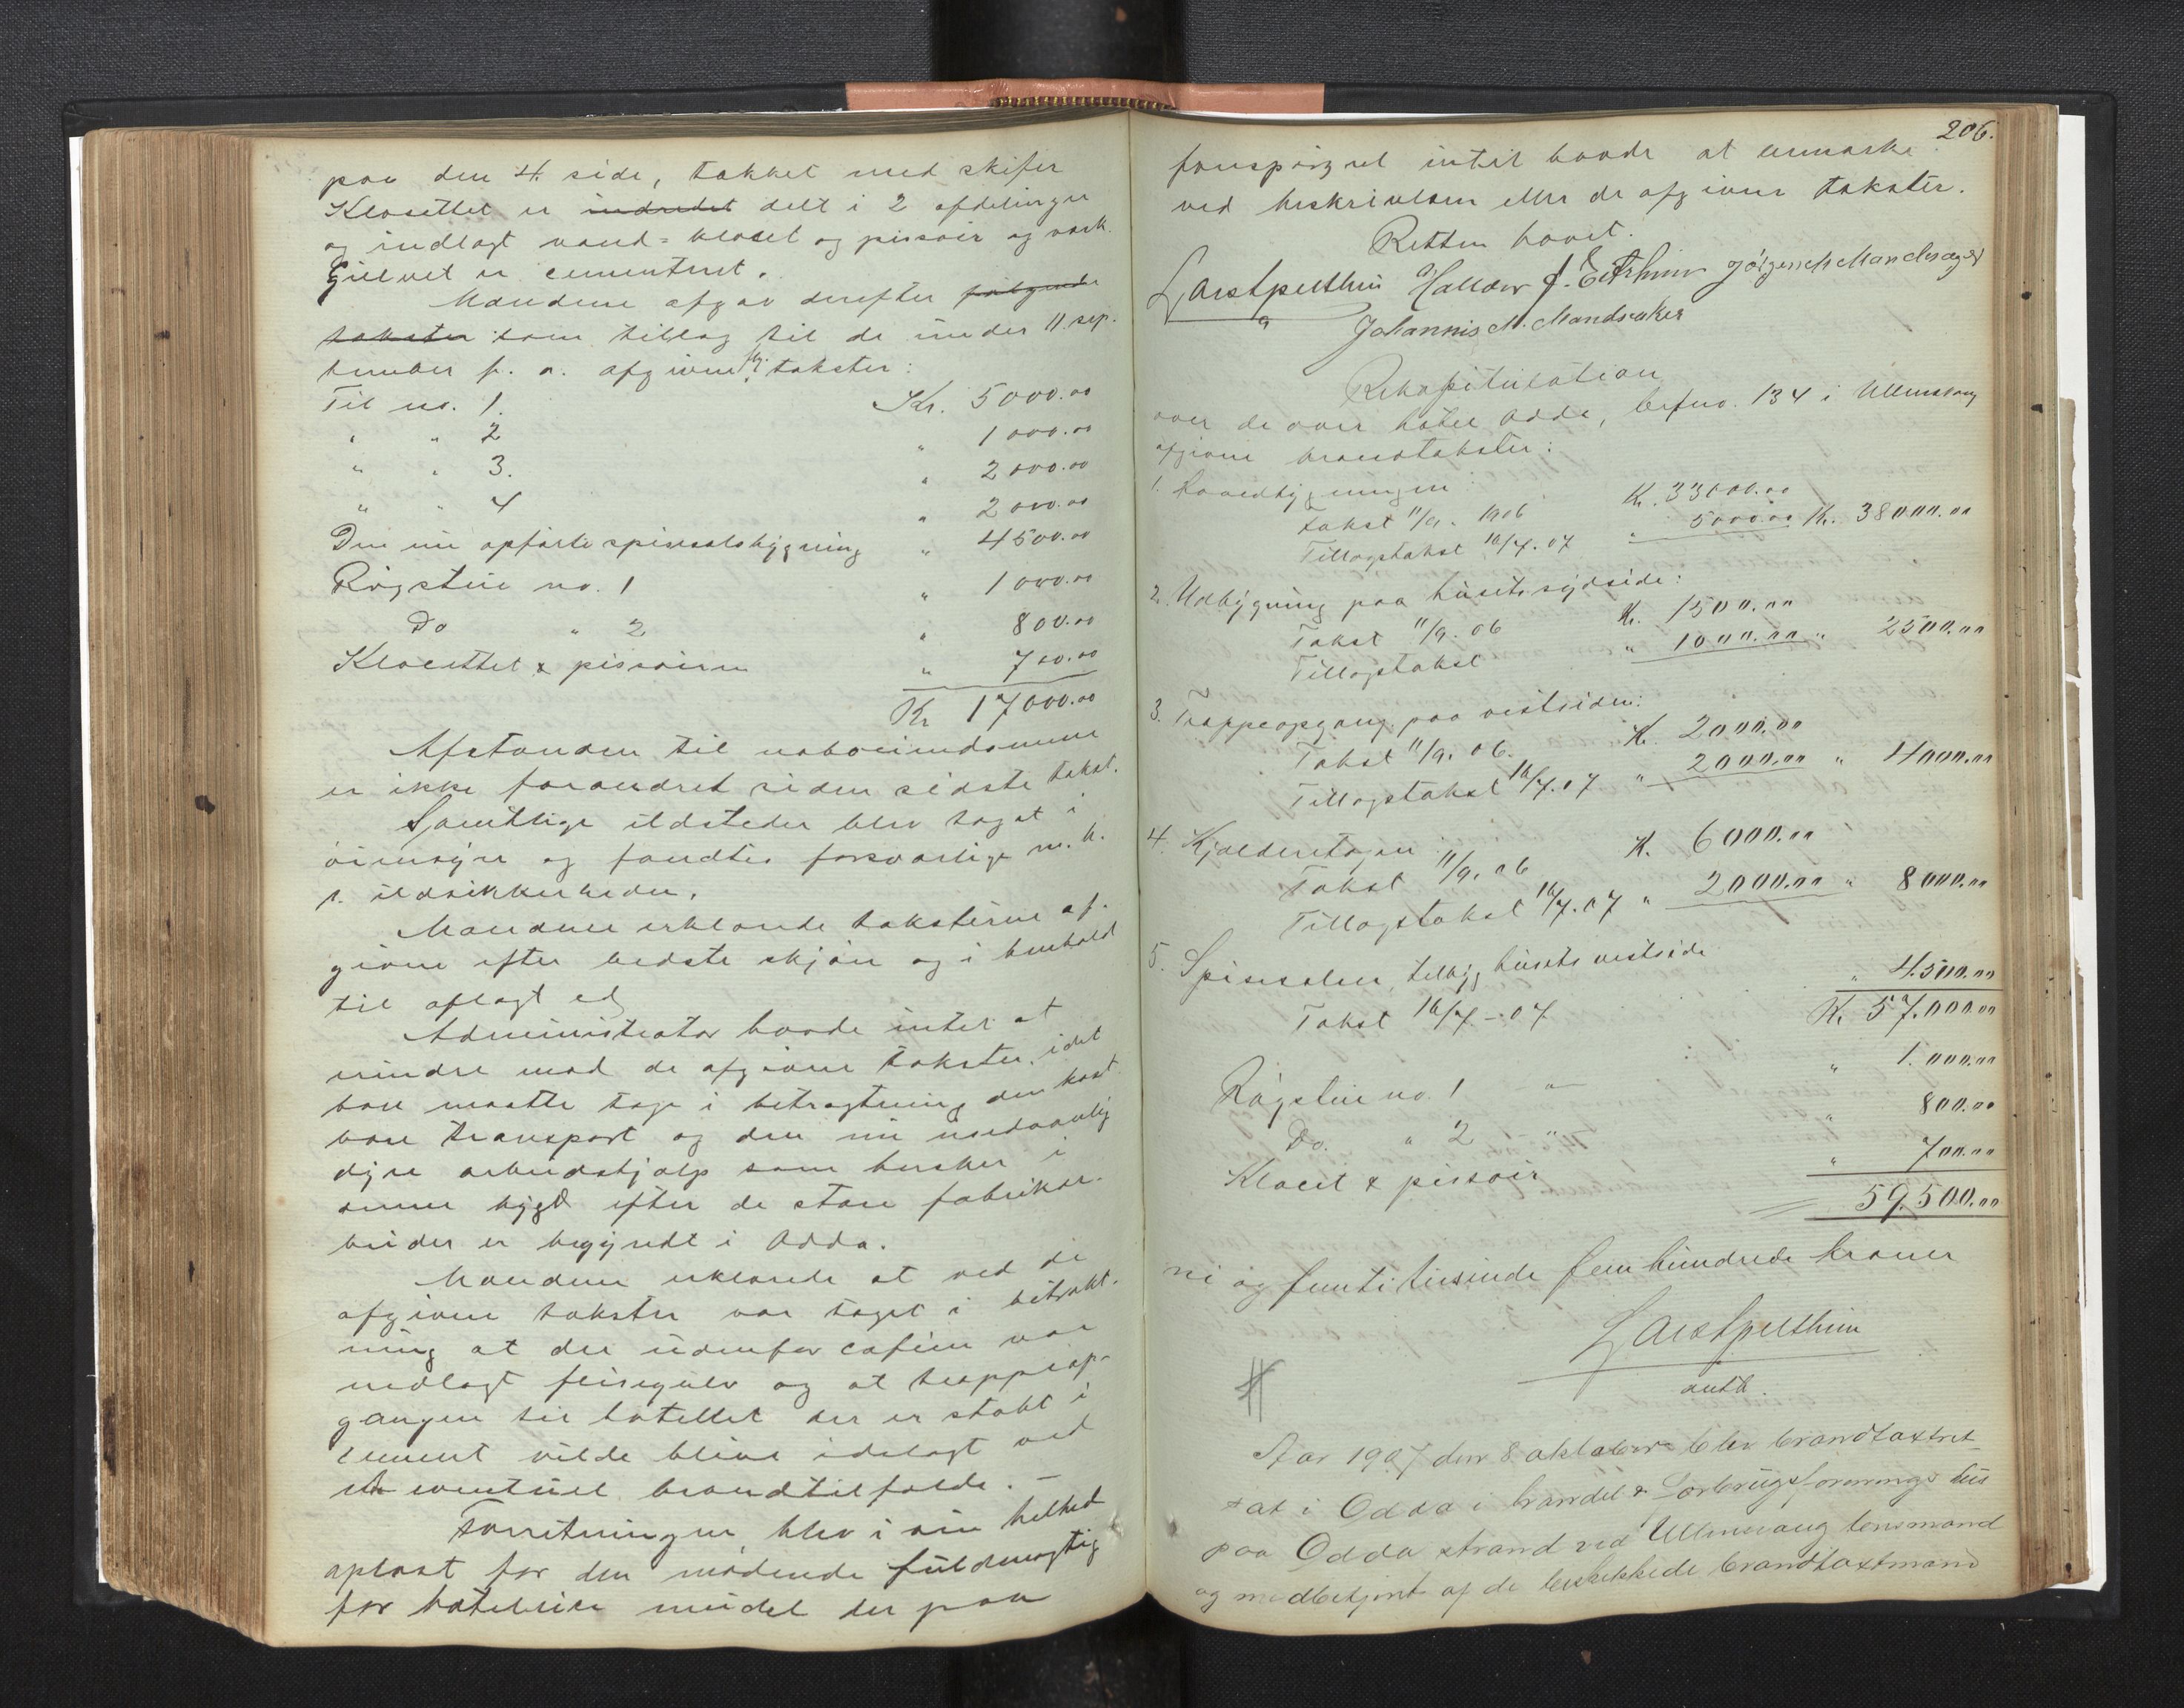 paa den 4. side, takket med skifer
Klosettet er indredet delt i 2 afdelinger
og indlagt vand-klosel og pissoir og vask.
Gulvet er cementeret.
Mændene afgav derefter følgende
takster som tillæg til de under 11. sep-
tember f. a. afgivne takster:
Til no. 1. Kr. 5000.00
" " 2 " 1000.00
" " 3. " 2000.00
" " 4 " 2000.00
Den nu opførte spisesalsbygning " 4500.00
Røgstue no. 1 " 1000.00
Do " 2 " 800.00
Klosettet & pissoiren " 700.00
Kr 17000.00
Afstanden til naboeiendommene
er ikke forandret siden sidste takst.
Samtlige ildsteder blev taget i
øiensyn og fandtes forsvarlige m. h.
t. ildsikkerheden.
Mændene erklærede taksterne af-
givne efter bedste skjøn og i henhold
til aflagt ed
Administrator havde intet at
erindre mod de afgivne takster, idet
han maatte tage i betragtning den kost-
bare transport og den nu usedvanlig
dyre arbeidshjælp som hersker i
denne bygd efter de store fabrikar-
beider er begyndt i Odda.
Mændene erklærede at ved de
afgivne takster var taget i betrakt-
ning at der udenfor cafeen var
nedlagt flisegulv og at trappeop-
gangen til hotellet der er støbt i
cement vilde blive ødelagt ved
et eventuel brandtilfælde. –
Forretningen blev i sin helhed
oplæst for den mødende fuldmægtig
for hoteleier mødet der paa
206.
forespørgsel intet havde at bemærke
ved beskrivelsen eller de afgivne takster.
Retten hævet.
Lars Apesthun Halldor J. Eitrheim Jørgen M Mandsager
Johannis M. Mandsaker
Rekapitulation
over de over hotel Odda, brfno. 134 i Ullensvang
afgivne brandtakster:
1. Hovedbygningen:
Takst 11/9. 1906 Kr. 33000.00
Tillægstakst 16/7.07 " 5000.00 Kr. 38000.00
2. Udbygning paa husets sydside:
Takst 11/9. 06 Kr. 1500.00
Tillægstakst " 1000.00 " 2500.00
3. Trappeopgang paa vestsiden:
Takst 11/9. 06. Kr. 2000.00
Tillægstakst 16/7.07 " 2000.00 " 4000.00
4. Kjælderetagen:
Takst 11/9. 06 Kr. 6000.00
Tillægstakst 16/7.07 " 2000.00 " 8000.00
5. Spisesalen, tilbyg husets vestside
Takst 16/7-07 " 4.500.00
Kr. 57.000.00
Røgstue no. 1 " " 1.000.00
Do. " 2 " " 800.00
Klosit & pissoir " 700.00
59.500.00
ni og femti tusinde fem hundrede kroner
Lars Apesthun
autb.
Aar 1907 den 8. oktober blev brandtaxtret
sat i Odda i handel & Forbrugsforenings hus
paa Odda strand ved Ullensvang lensmand
og medbetjent af de beskikkede brandtaxtmænd